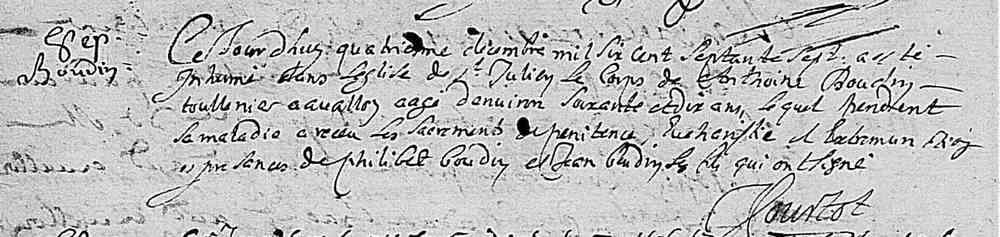 Sep.
Boudin
Ce Jourdhuy quatrieme decembre mil six cent septante sept. a esté
Inhumé dans Leglise de St. Julien le corps de Anthoine Boudin
tonllenier a avallon aagé denviron soixante et dix ans, lequel pendent
sa maladie a receu les sacrements de penitence Eucharistie et Extremun
es presences de philibet boudin et Jean boudin ses fils qui ont signé